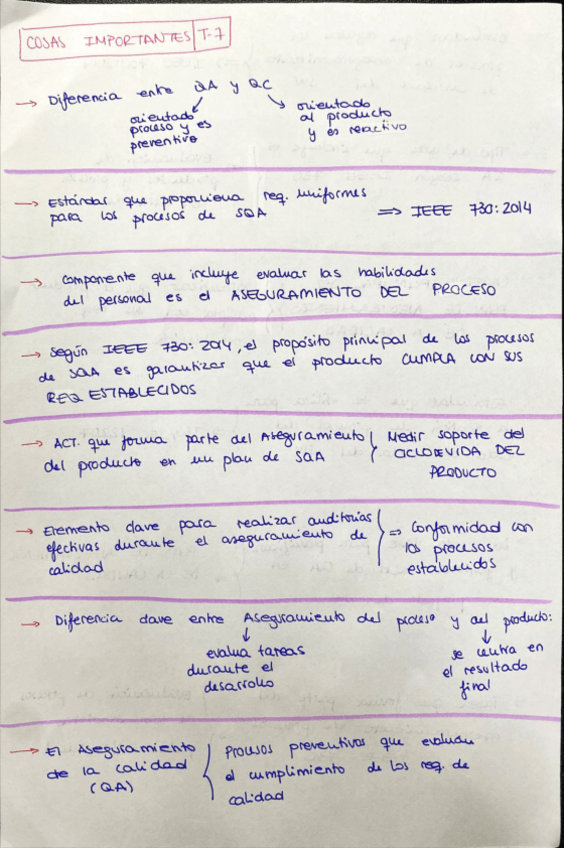 COSAS IMPORTANTES T-7
→ Diferencia entre QA y QC
orientado
proceso y es
preventivo
orientado
al producto
y es reactivo
→ Estándar que proporciona req. uniformes
para los procesos de SQA
⇒ IEEE 730:2014
→ Componente que incluye evaluar las habilidades
del personal es el ASEGURAMIENTO DEL PROCESO
→ Según IEEE 730:2014, el propósito principal de los procesos
de SQA es garantizar que el producto CUMPLA CON SUS
REQ ESTABLECIDOS
→ ACT. que forma parte del Aseguramiento
del producto en un plan de SQA
Medir soporte del
CICLO DE VIDA DEL
PRODUCTO
→ Elemento clave para realizar auditorías
efectivas durante el aseguramiento de
calidad
⇒ Conformidad con
los procesos
establecidos
→ Diferencia clave entre Aseguramiento del proceso y del producto:
evalua tareas
durante el
desarrollo
se centra en
el resultado
final
→ El Aseguramiento
de la calidad
(QA)
Procesos preventivos que evaluan
el cumplimiento de los req. de
calidad